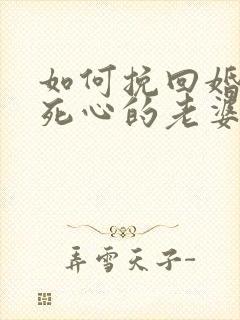 如何挽回婚
死心的老婆
弄雪天子-